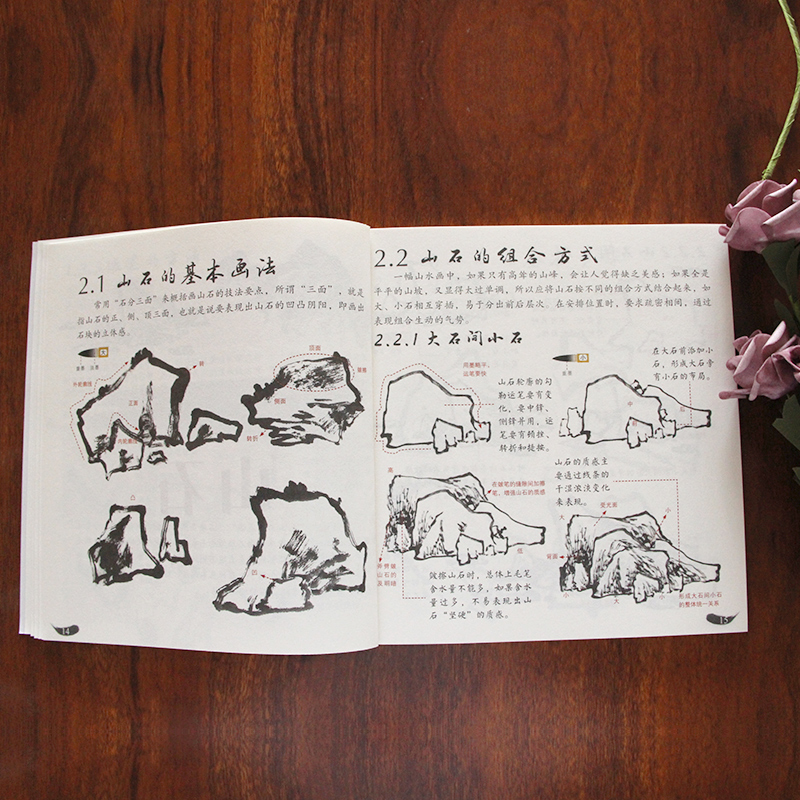 2.1 山石的基本画法
常用“石分三面”来概括画山石的技法要点，所谓“三面”，就是
指山石的正、侧、顶三面，也就是说要表现出山石的凹凸阴阳，即画出
石块的立体感。
大
顶面
转
外轮廓线
正面
侧面
内轮廓线
转折
凸
凹
14
2.2 山石的组合方式
一幅山水画中，如果只有高耸的山峰，会让人觉得缺乏美感；如果全是
平平的山坡，又显得太过单调，所以应将山石按不同的组合方式结合起来，如
大、小石相互穿插，易于分出前后层次。在安排位置时，要求疏密相间，通过
表现组合生动的气势。
2.2.1 大石间小石
用墨略干，
运笔要快
山石轮廓的勾
勒运笔要有变
化，要中锋、
侧锋并用，运
笔要有顿挫、
转折和提按。
小
在大石前添加小
石，形成大石旁
有小石的布局。
中
石
高
在皴笔的缝隙间加擦
笔，增强山石的质感
低
皴擦山石时，总体上毛笔
含水量不能多，如果含水
量过多，不易表现出山
石“坚硬”的质感。
山石的质感主
要通过线条的
干湿浓淡变化
来表现。
受光面
大
小
背面
小
大
小
形成大石间小石
的整体统一关系
15